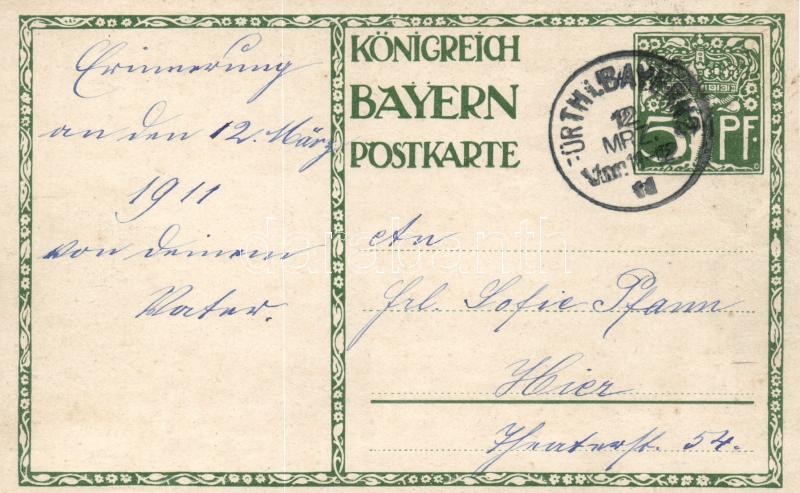 Erinnerung
an den 12. März
1911
von deinem
Vater.
KÖNIGREICH
BAYERN
POSTKARTE
5 PF.
FÜRTH i. BAYERN
12
MRZ
Vrm 11-12
11
An
Frl. Sofie Pfann
Hier
Theaterstr. 54.
darabanth